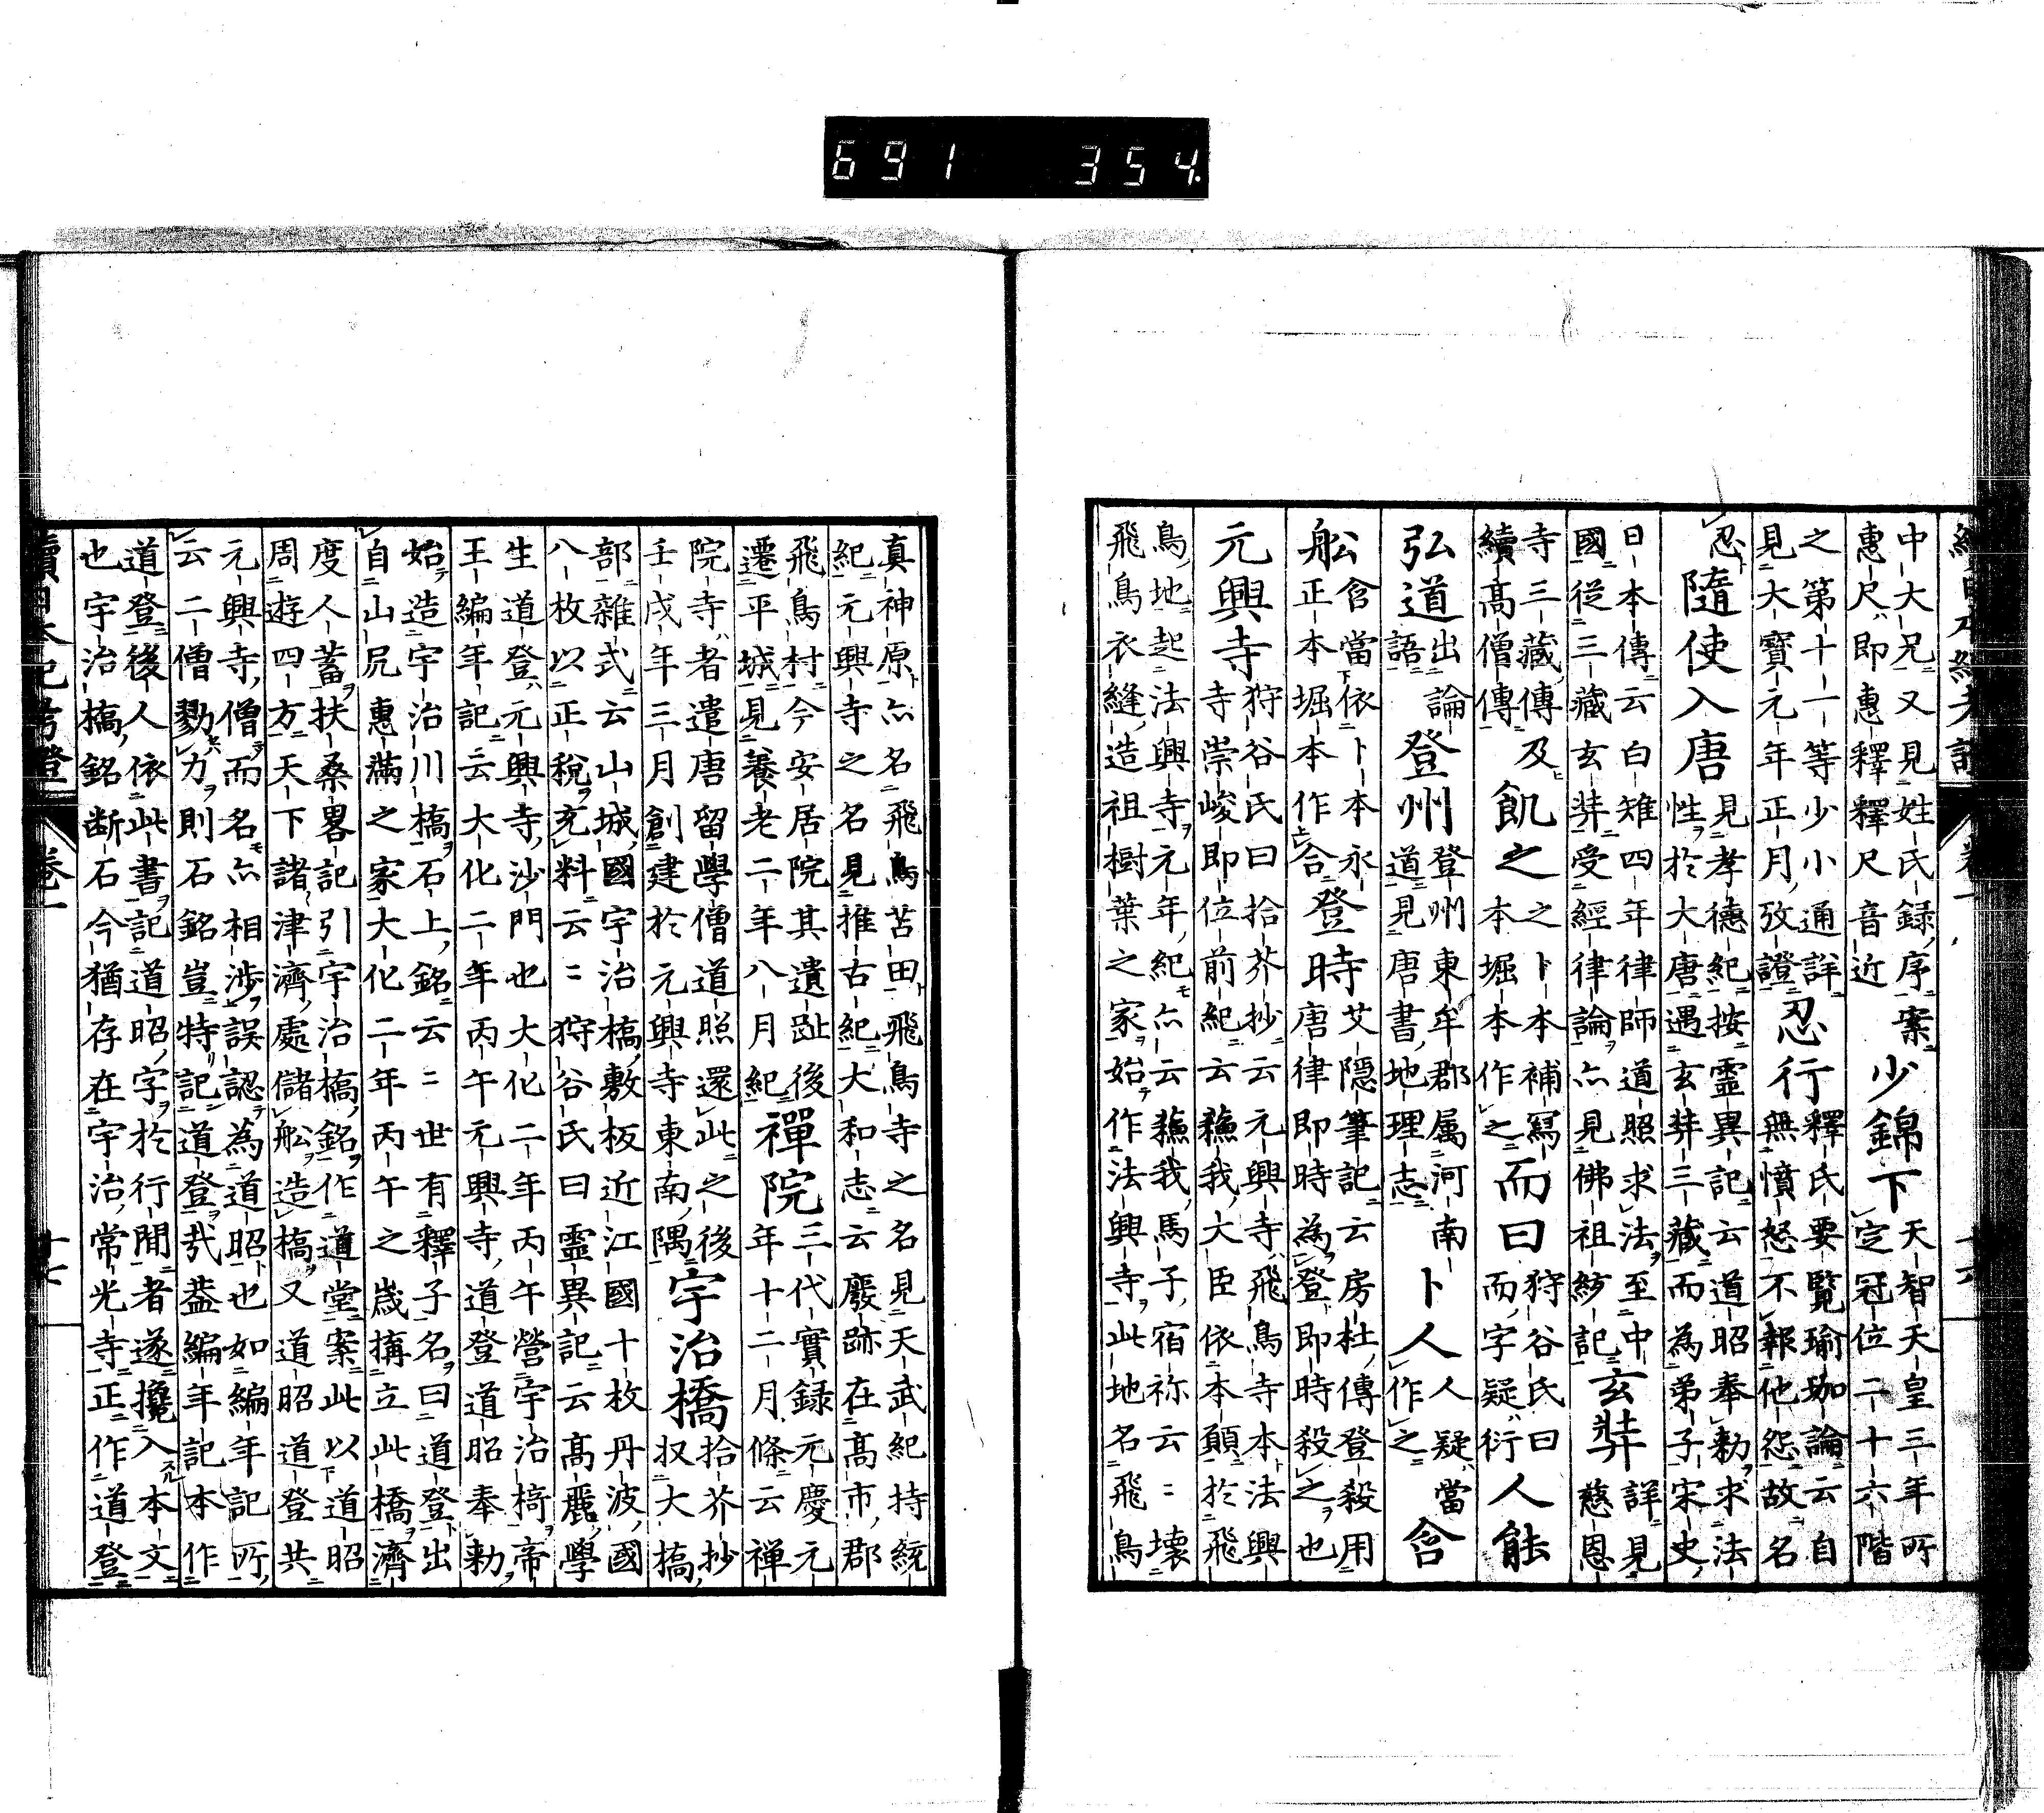 續日本紀考證 卷一 十六
中大兄又見姓氏録序案
惠尺即惠釋釋尺音近
少錦下
天智天皇三年所
定冠位二十六階
之第十一等少小通詳
見大寶元年正月攷證
忍行
釋氏要覽瑜珈論云自
無憤怒不報他怨故名
忍
隨使入唐
見孝德紀按靈異記云道昭奉勅求法
性於大唐遇玄弉三藏而為弟子宋史
日本傳云白雉四年律師道照求法至中
國從三藏玄弉受經律論亦見佛祖紗記
玄弉
詳見
慈恩
寺三藏傳及
續高僧傳
飢之
之卜本補寫
本堀本作之
而曰
狩谷氏曰
而字疑衍
人能
弘道
出論
語
登州
登州東牟郡属河南
道見唐書地理志
卜人
人疑當
作之
含
舩
含當依卜本永
正本堀本作合
登時
艾隱筆記云房杜傳登殺用
唐律即時為登即時殺之也
元興寺
狩谷氏曰拾芥抄云元興寺飛鳥寺本法興
寺崇峻即位前紀云蘓我大臣依本願於飛
鳥地起法興寺元年紀亦云蘓我馬子宿祢云〻壊
飛鳥衣縫造祖樹葉之家始作法興寺此地名飛鳥
真神原亦名飛鳥苫田飛鳥寺之名見天武紀持統
紀元興寺之名見推古紀大和志云廢跡在高市郡
飛鳥村今安居院其遺趾後
遷平城見養老二年八月紀
禪院
三代實録元慶元
年十二月條云禅
院寺者遣唐留學僧道照還此之後
壬戌年三月創建於元興寺東南隅
宇治橋
拾芥抄
扠大槗
部雜式云山城國宇治槗敷板近江國十枚丹波國
八枚以正税充料云〻狩谷氏曰靈異記云高麗學
生道登元興寺沙門也大化二年丙午營宇治椅帝
王編年記云大化二年丙午元興寺道登道昭奉勅
始造宇治川橋石上銘云〻世有釋子名曰道登出
自山尻惠滿之家大化二年丙午之歳搆立此橋濟
度人蓄扶桑畧記引宇治槗銘作道堂案此以道昭
周遊四方天下諸津濟處儲舩造槗又道昭道登共
元興寺僧而名亦相渉誤認為道昭也如編年記所
云二僧勠力則石銘豈特記道登哉葢編年記本作
道登後人依此書記道昭字於行間者遂攙入本文
也宇治槗銘断石今猶存在宇治常光寺正作道登
續日本紀考證 卷一 十七
691 354